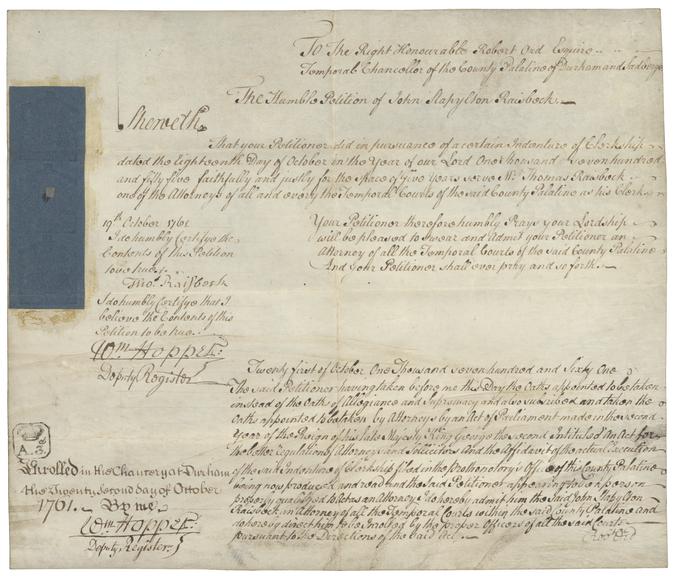 To The Right Honourable Robert Ord Esquire
Temporal Chancellor of the County Palatine of Durham and Sadberge
The Humble Petition of John Stapylton Raisbeck
Sheweth
That your Petitioner did in pursuance of a certain Indenture of Clerkship
dated the Eighteenth Day of October in the Year of our Lord One Thousand seven hundred
and fifty five faithfully and justly for the space of five Years serve Mr. Thomas Raisbeck
one of the Attorneys of all and every the Temporal Courts of the said County Palatine as his Clerk
19th October 1761
I do humbly Certifye the
Contents of this Petition
to be true
Thos. Raisbeck
I do humbly Certifye that I
believe the Contents of this
Petition to be true
Wm. Hopper
Deputy Register
Your Petitioner therefore humbly Prays your Lordship
will be pleased to swear and Admit your Petitioner an
Attorney of all the Temporal Courts of the said County Palatine
And your Petitioner shall ever pray and so forth
Twenty first of October One Thousand seven hundred and Sixty One
The said Petitioner having taken before me this Day the Oaths appointed to be taken
instead of the Oaths of Allegiance and Supremacy and also subscribed and taken the
Oaths appointed to be taken by Attorneys by an Act of Parliament made in the second
Year of the Reign of his late Majesty King George the second Intituled An Act for
the better regulation of Attorneys and Sollicitors And the Affidavit of the actual Execution
of the said Indenture of Clerkship filed in the Prothonotary's Office of this County Palatine
being now produced and read and the said Petitioner appearing to me a person
properly qualified to be as an Attorney I do hereby admit him the said John Stapylton
Raisbeck an Attorney of all the Temporal Courts within the said County Palatine and
do hereby direct him to be inrolled by the proper Officers of all the said Courts
pursuant to the Directions of the said Act
Robt Ord
A.3
Enrolled in the Chancery at Durham
this Twenty second day of October
1761. By me,
Wm. Hopper
Deputy Register